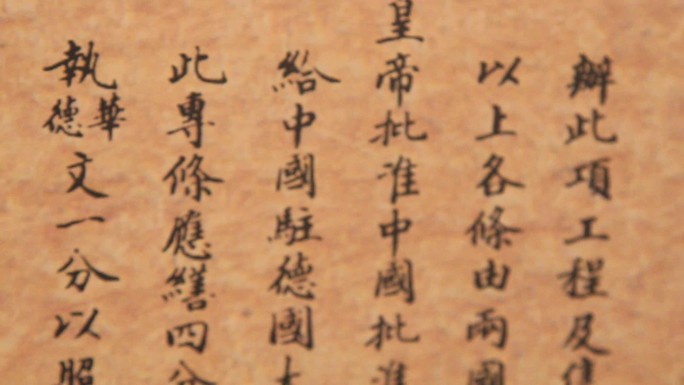 辦此項工程及
以上各條由兩國
皇帝批准中國批准
給中國駐德國大
此專條應繕四分
執華德文一分以照